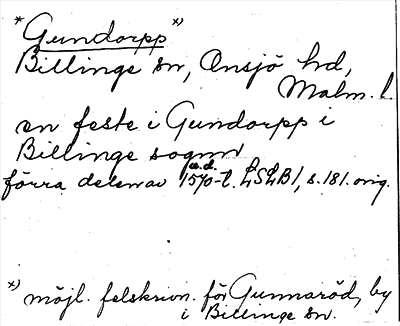 * Gundorpp *)
Billinge sn, Onsjö hd,
Malm. l.
en feste i Gundorpp i
Billinge sognn
u.d.
förra delen av 1570-t. LSLB1, s. 181. orig.
*) möjl. felskrivn. för Gunnaröd, by
i Billinge sn.